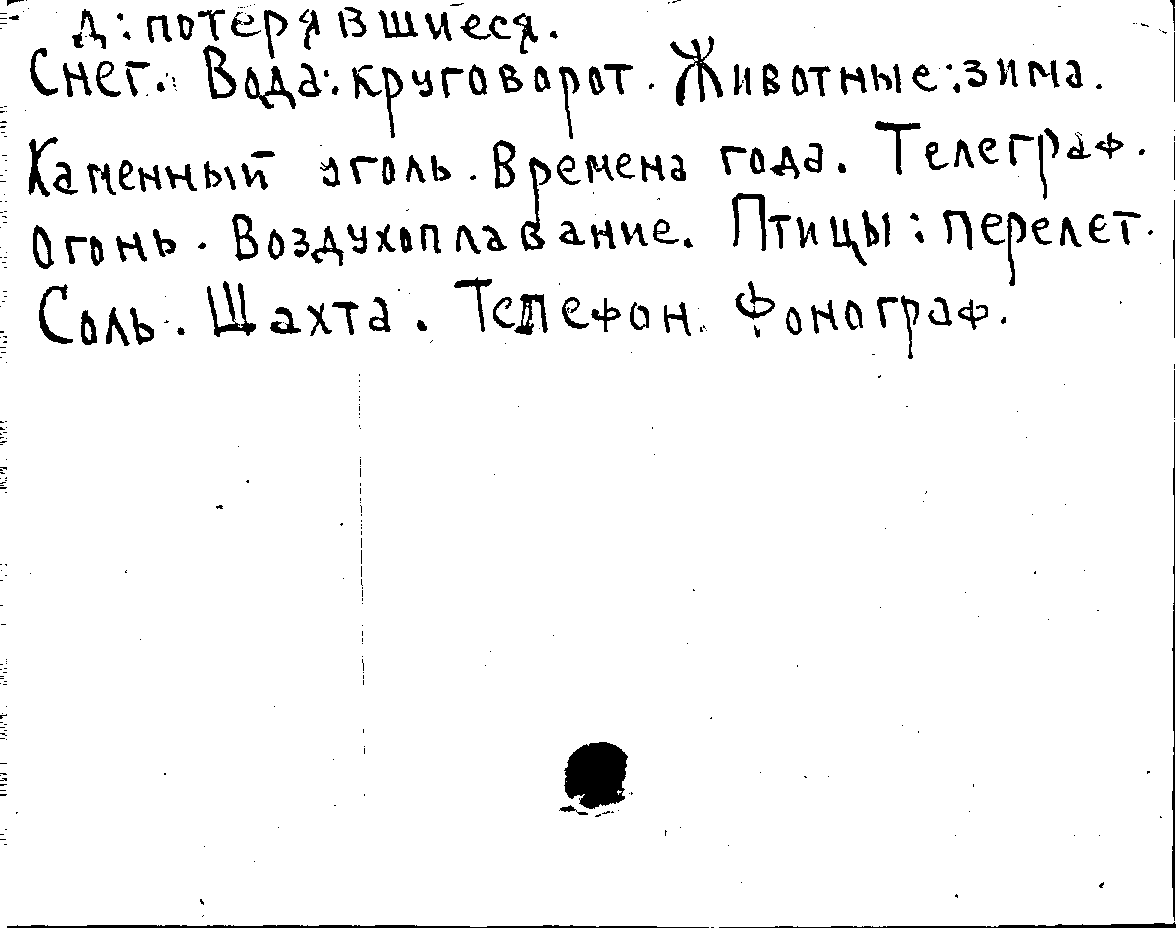 Д: потерявшиеся.
Снег. Вода: круговорот. Животные: зима.
Каменный уголь. Времена года. Телеграф.
Огонь. Воздухоплавание. Птицы: перелет.
Соль. Шахта. Телефон. Фонограф.